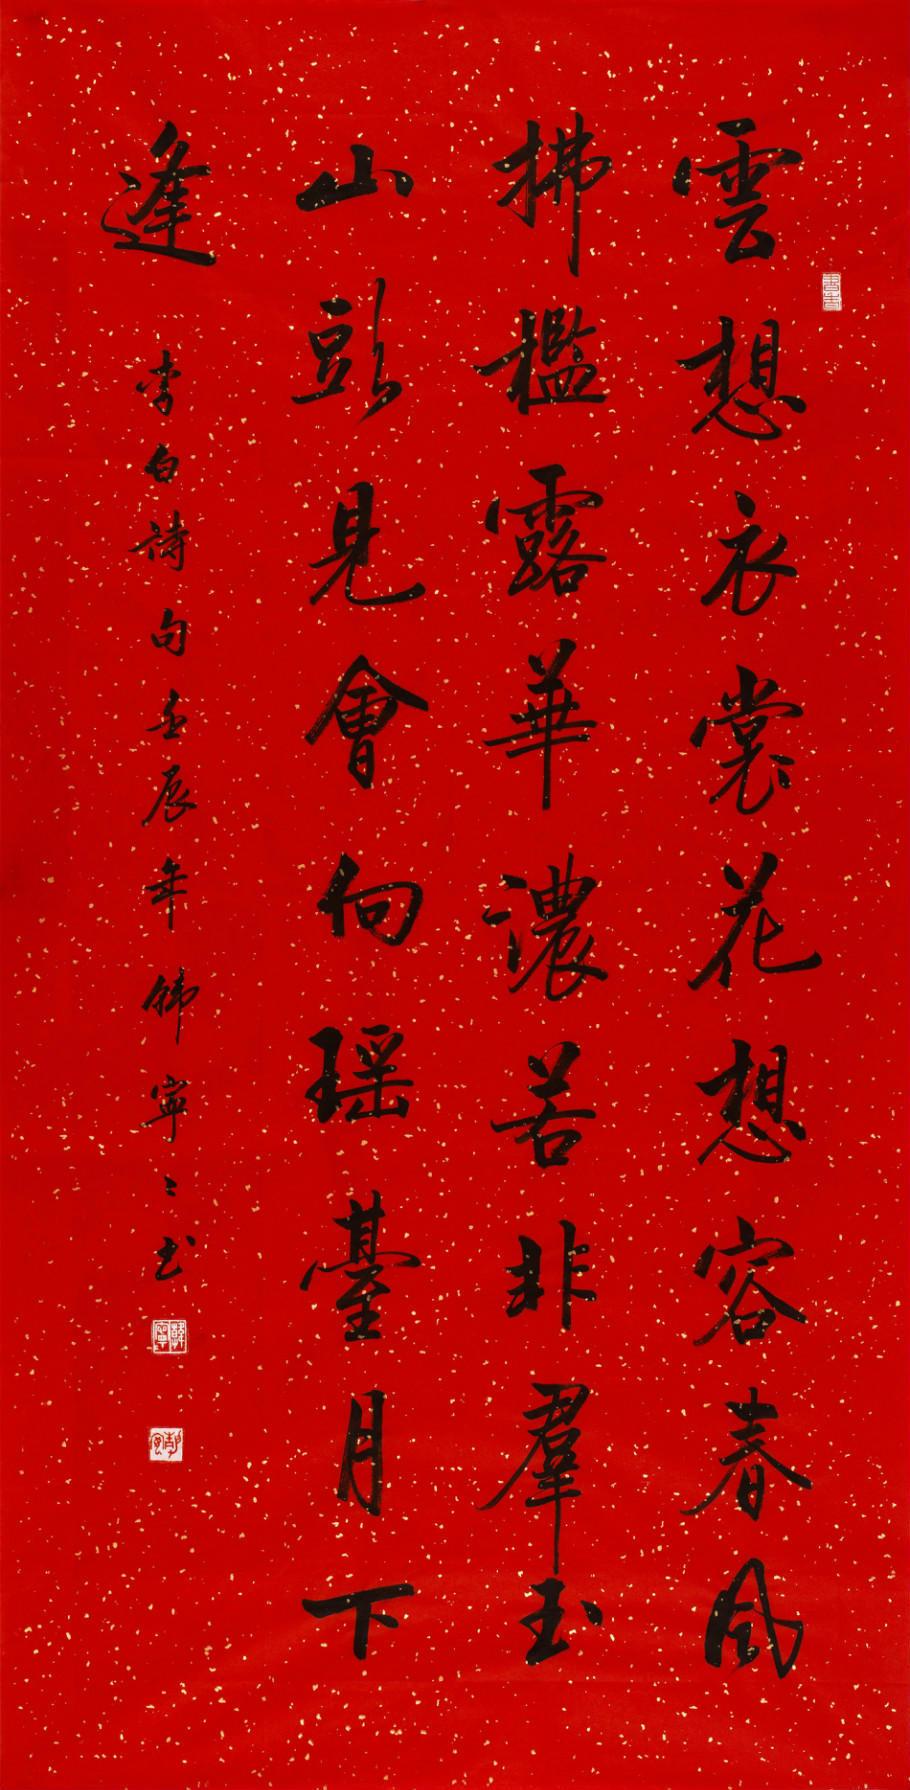 雲想衣裳花想容春風
拂檻露華濃若非羣玉
山頭見會向瑶臺月下
逢
李白詩句壬辰年韩寧寧書
韓寧